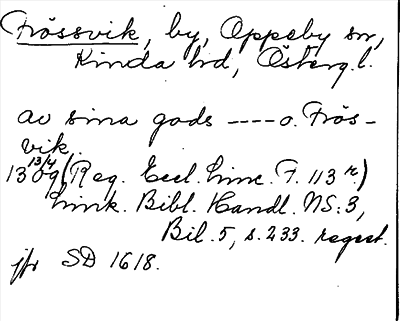 Frössvik, by, Oppeby sn,
Kinda hd, Österg.l.
av sina gods ---- o. Frös-
vik.
13/4
1309 (Reg. Eccl. Linc. F. 113 r)
Link. Bibl. Handl. NS: 3,
Bil. 5, s. 233. regest.
jfr SD 1618.